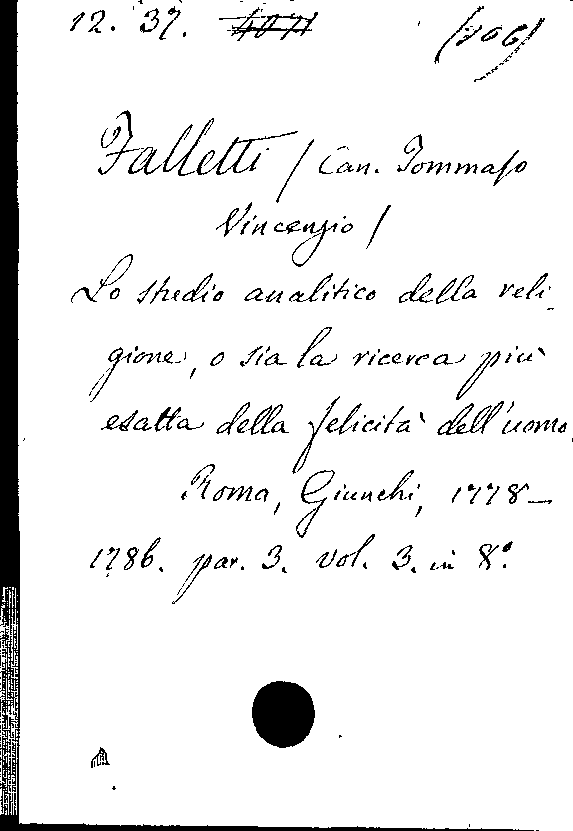 12. 37.
Falletti / Can. Tommaso
Vincenzio /
Lo studio analitico della reli-
gione, o sia la ricerca più
esatta della felicità dell'uomo.
Roma, Giunchi, 1778-
1786. par. 3. vol. 3. in 8°.